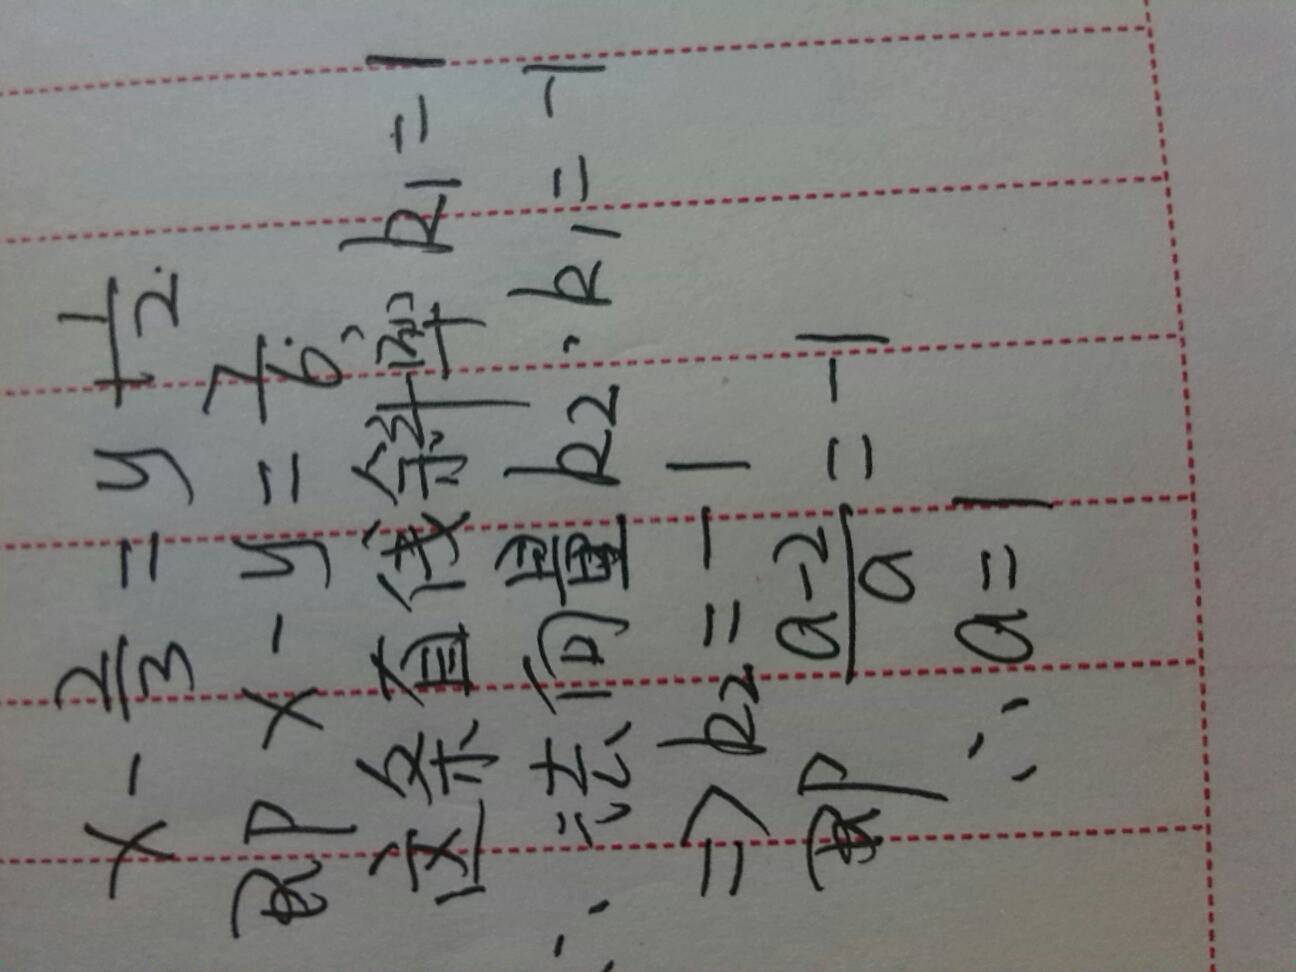 x - 2/3 = y + 1/2.
即 x - y = 7/6,
这条直线斜率 k1 = 1
∴ 法向量 k2 · k1 = -1
=> k2 = -1
即 a-2/a = -1
∴ a = 1